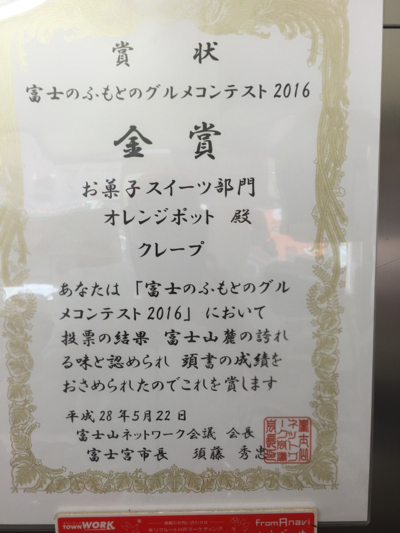 賞 状
富士のふもとのグルメコンテスト2016
金 賞
お菓子スイーツ部門
オレンジポット 殿
クレープ
あなたは「富士のふもとのグル
メコンテスト2016」において
投票の結果 富士山麓の誇れ
る味と認められ 頭書の成績を
おさめられたのでこれを賞します
平成28年5月22日
富士山ネットワーク会議 会長
富士宮市長 須藤 秀忠
townWORK
FromA navi